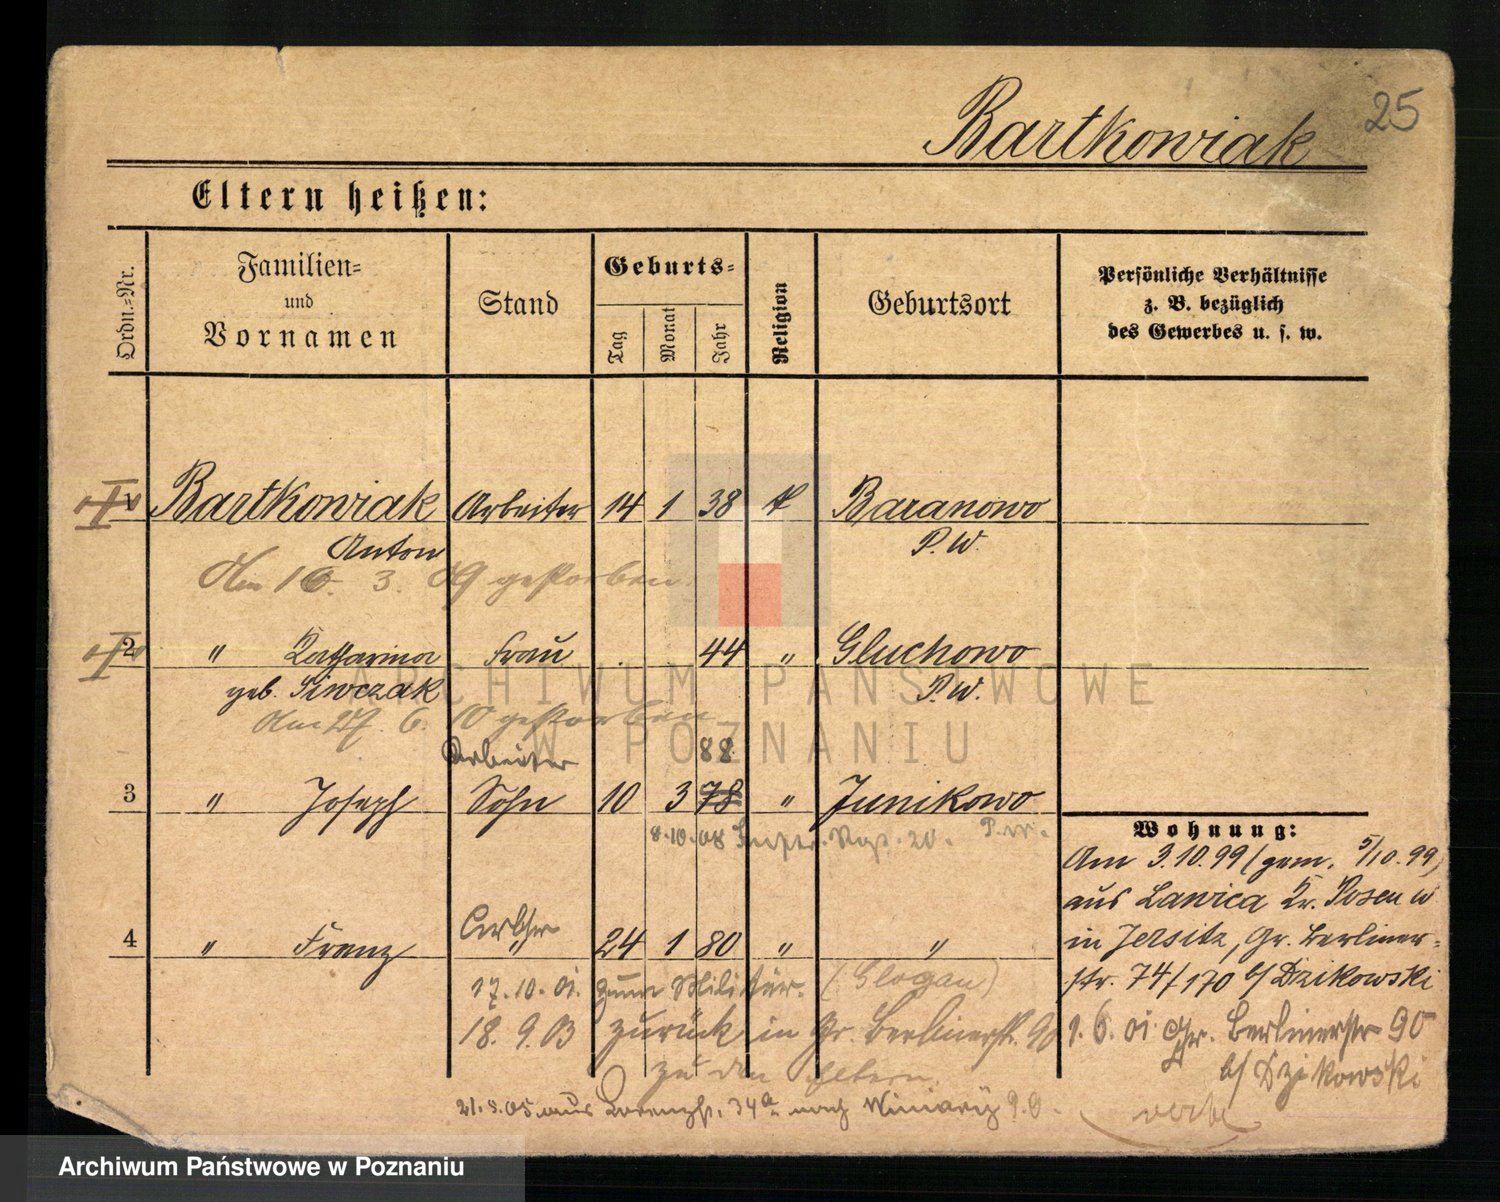 Bartkowiak 25
Eltern heißen:
Ordn.=Nr.
Familien=
und
Vornamen
Stand
Geburts=
Tag
Monat
Jahr
Religion
Geburtsort
Persönliche Verhältnisse
z. B. bezüglich
des Gewerbes u. s. w.
1 Bartkowiak Arbeiter 14 1 38 k Baranowo
Anton P. W.
Am 16. 3. 09 gestorben
2 " Katharina Frau 44 " Gluchowo
geb. Siwczak P. W.
Am 27. 6. 10 gestorben
Arbeiter 88
3 " Joseph Sohn 10 3 78 " Junikowo
8.10.08 20. P. W.
4 " Franz " 24 1 80 " "
17.10.01. zum Militär. (Glogau)
18.9.03 zurück in Gr. Berlinerstr. 90
zu den Eltern
21.8.05 aus 34a nach Winiary P.O.
Wohnung:
Am 3.10.99 (gem. 5/10.99)
aus Lawica Kr. Posen W
in Jersitz, Gr. Berliner=
str. 74/170 b/ Dzikowski
1.6.01. Gr. Berlinerstr 90
b/ Dzikowski
ARCHIWUM PAŃSTWOWE
W POZNANIU
Archiwum Państwowe w Poznaniu